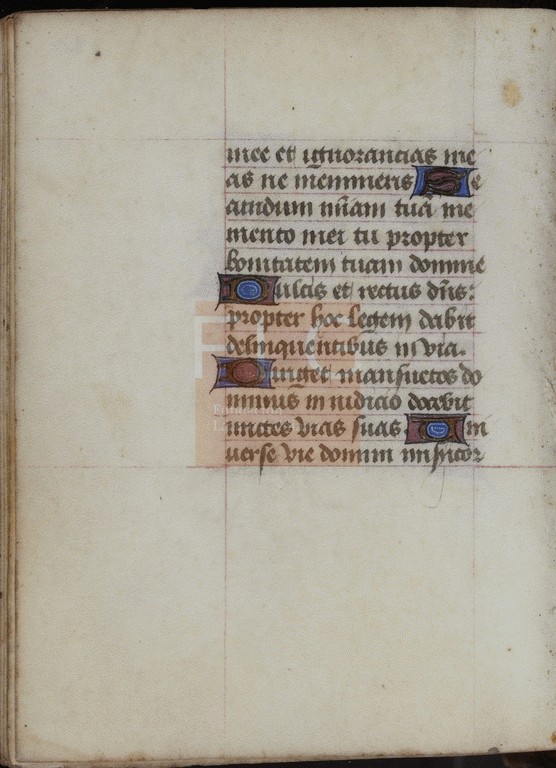 mee et ignorancias me
as ne memineris Se
cundum miam tuā me
mento mei tu propter
bonitatem tuam domine
Dulcis et rectus dns:
propter hoc legem dabit
delinquentibus in via.
Diriget mansuetos do
minus in iudicio docebit
mites vias suas Un
uerse vie domini misicor